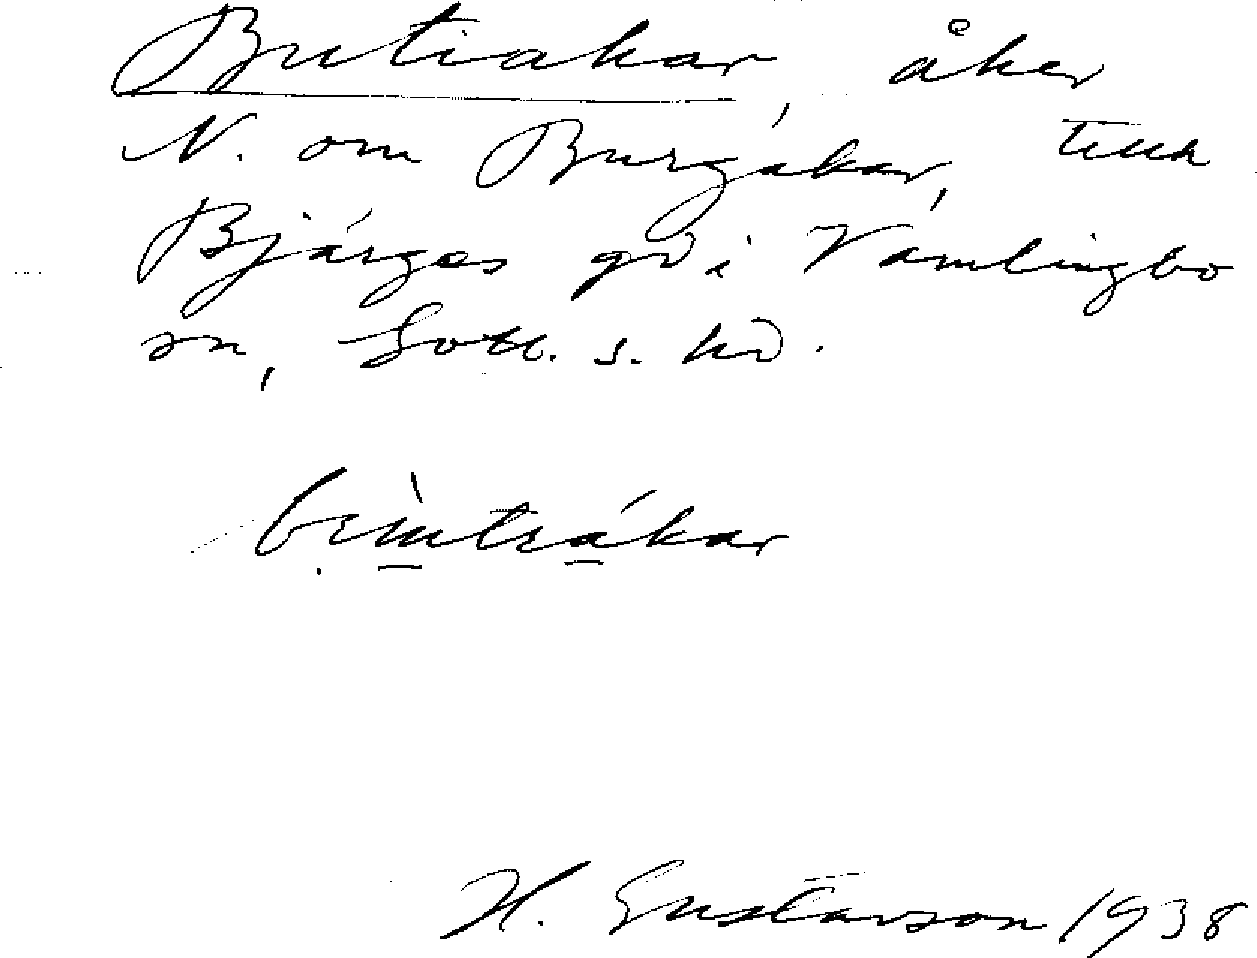 Butiakar, åker
N. om Burgåkar, till
Bjärges gd i Vamlingbo
sn, Gotl. s. hd.
H. Gustavson 1938